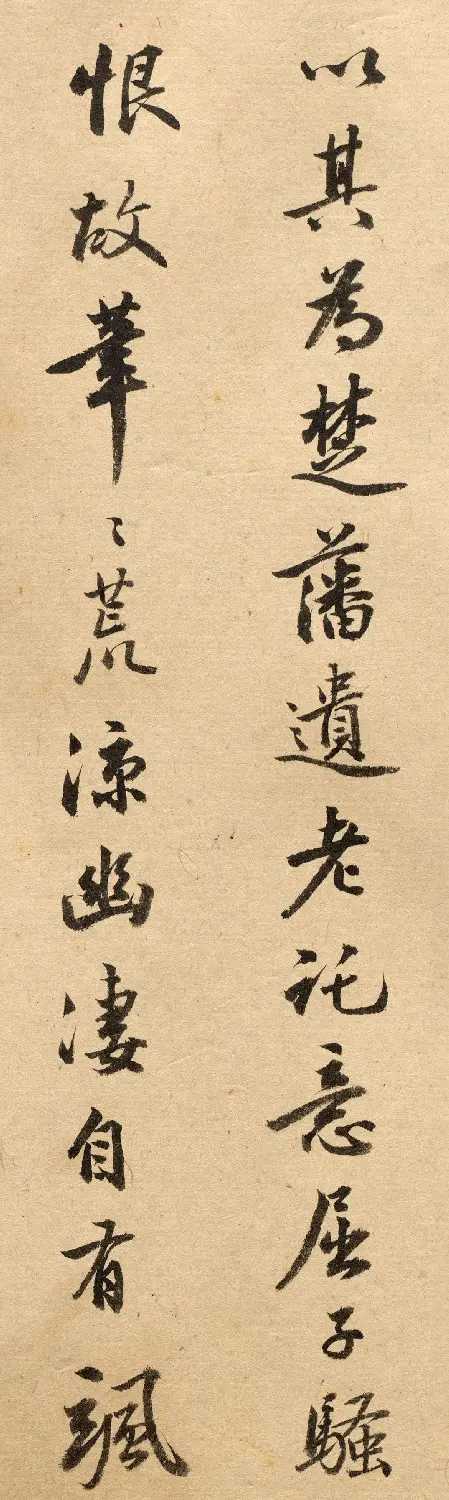 以其為楚藩遺老託意屈子騷
恨故筆〻荒涼幽淒自有颯